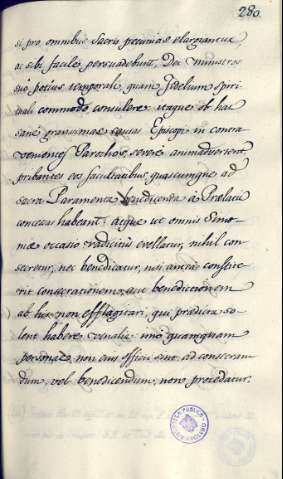 280.
si pro omnibus Sacris pecunias elargiantur,
ac sibi facile persuadebunt, Dei ministros
suo potius temporali, quam Fidelium Spiri-
tuali commodo consulere: itaque ob has
sane gravissimas causas Episcopi in contra
venientes Parochos severe animadvertent
privantes eos facultatibus, quascumque ad
sacra Paramenta benedicenda à Praelatis
concessas habeant: atque ut omnis Simo-
niae occasio radicitus evellatur, nihil con
secretur, nec benedicatur, nisi antea constite-
rit consecrationem, aut benedictionem
ab his non efflagitari, qui praedicta so-
lent habere venalia: imo quamquam
personae, non aut officii sint, ad consecran-
dum, vel benedicendum, non procedatur.